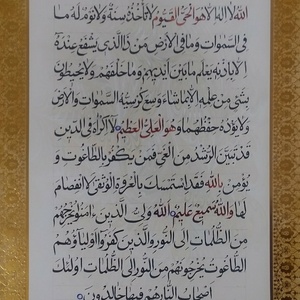 الله لا اله الا هو الحی القیوم لا تأخذه سنة ولا نوم له ما
فی السموات وما فی الارض من ذا الذی یشفع عنده
الا باذنه یعلم ما بین ایدیهم وما خلفهم ولا یحیطون
بشئ من علمه الا بما شاء وسع کرسیه السموات والارض
ولا یؤده حفظهما وهو العلی العظیم لا اکراه فی الدین
قد تبین الرشد من الغی فمن یکفر بالطاغوت و
یؤمن بالله فقد استمسک بالعروة الوثقی لا انفصام
لها والله سمیع علیم الله ولی الذین امنوا یخرجهم
من الظلمات الی النور والذین کفروا اولیاؤهم
الطاغوت یخرجونهم من النور الی الظلمات اولئک
اصحاب النار هم فیها خالدون